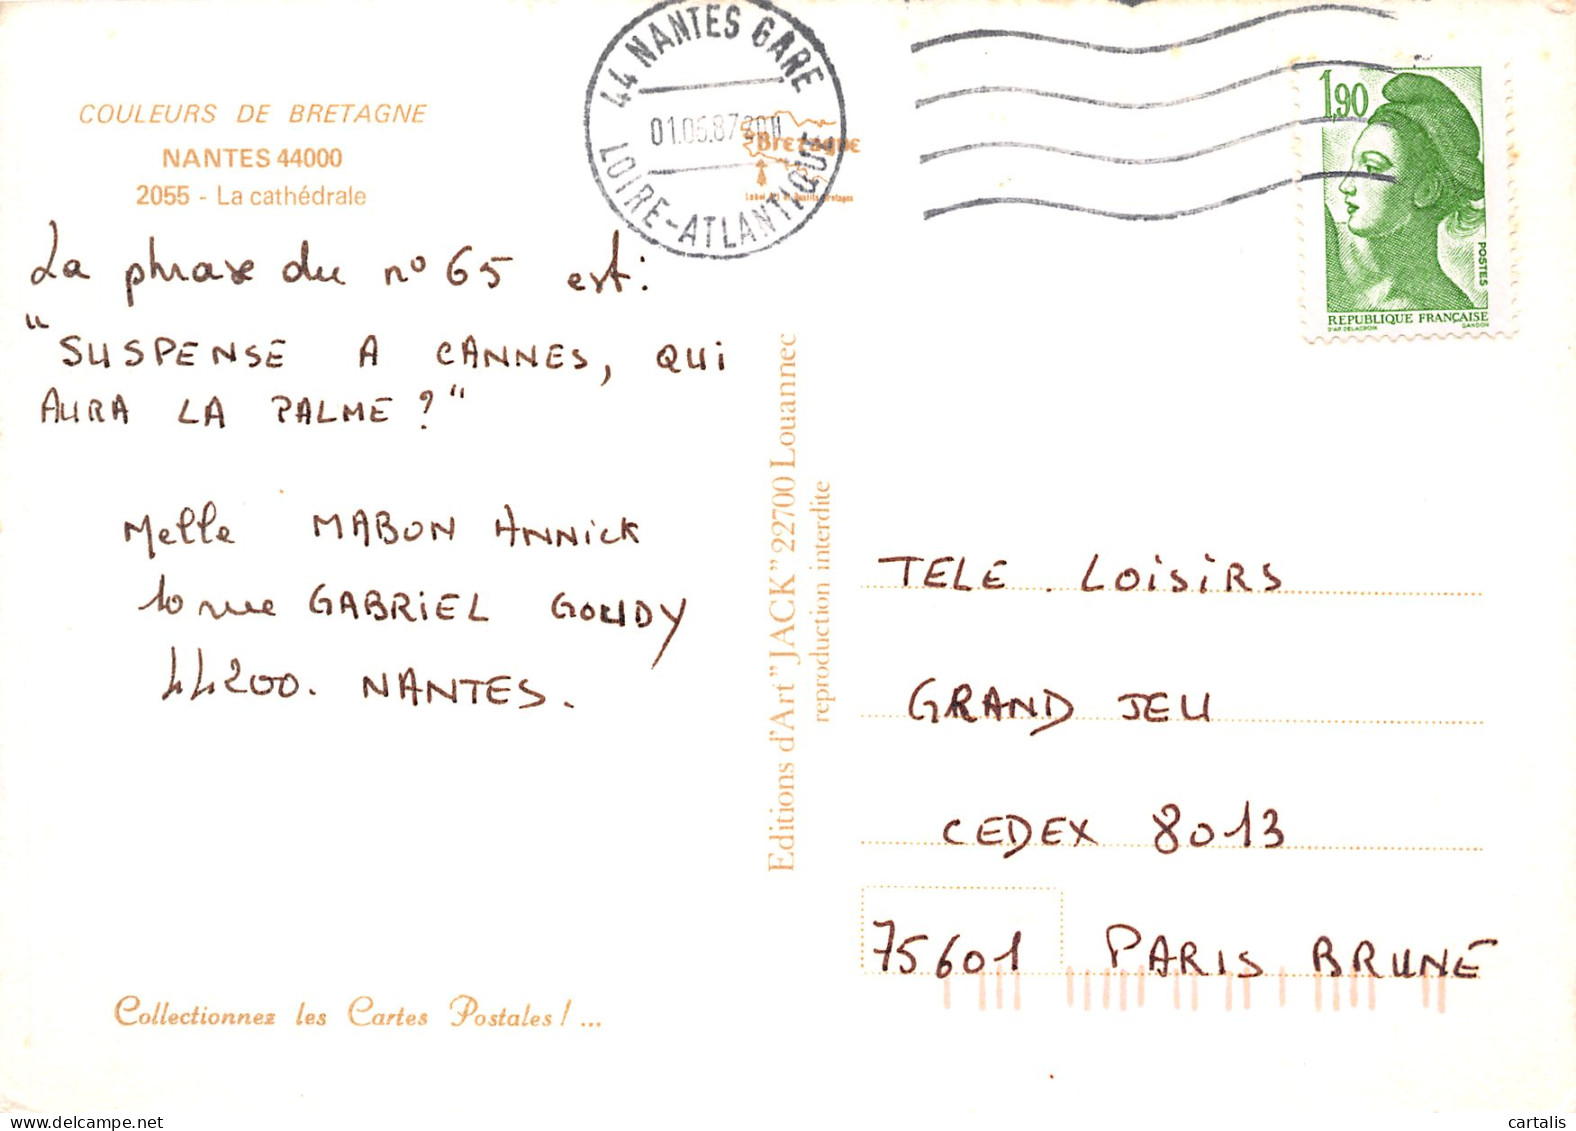 COULEURS DE BRETAGNE
NANTES 44000
2055 - La cathédrale
La phrase du n° 65 est :
"SUSPENSE A CANNES, QUI
AURA LA PALME ?"
Melle MABON ANNICK
10 rue GABRIEL GOUDY
44200. NANTES.
Collectionnez les Cartes Postales ! ...
44 NANTES GARE
01.05.87
LOIRE-ATLANTIQUE
Bretagne
Editions d'Art "JACK" 22700 Louannec
reproduction interdite
1,90
POSTES
REPUBLIQUE FRANÇAISE
D'AP. DELACROIX GANDON
TELE . LOISIRS
GRAND JEU
CEDEX 8013
75601 PARIS BRUNE
cartalis